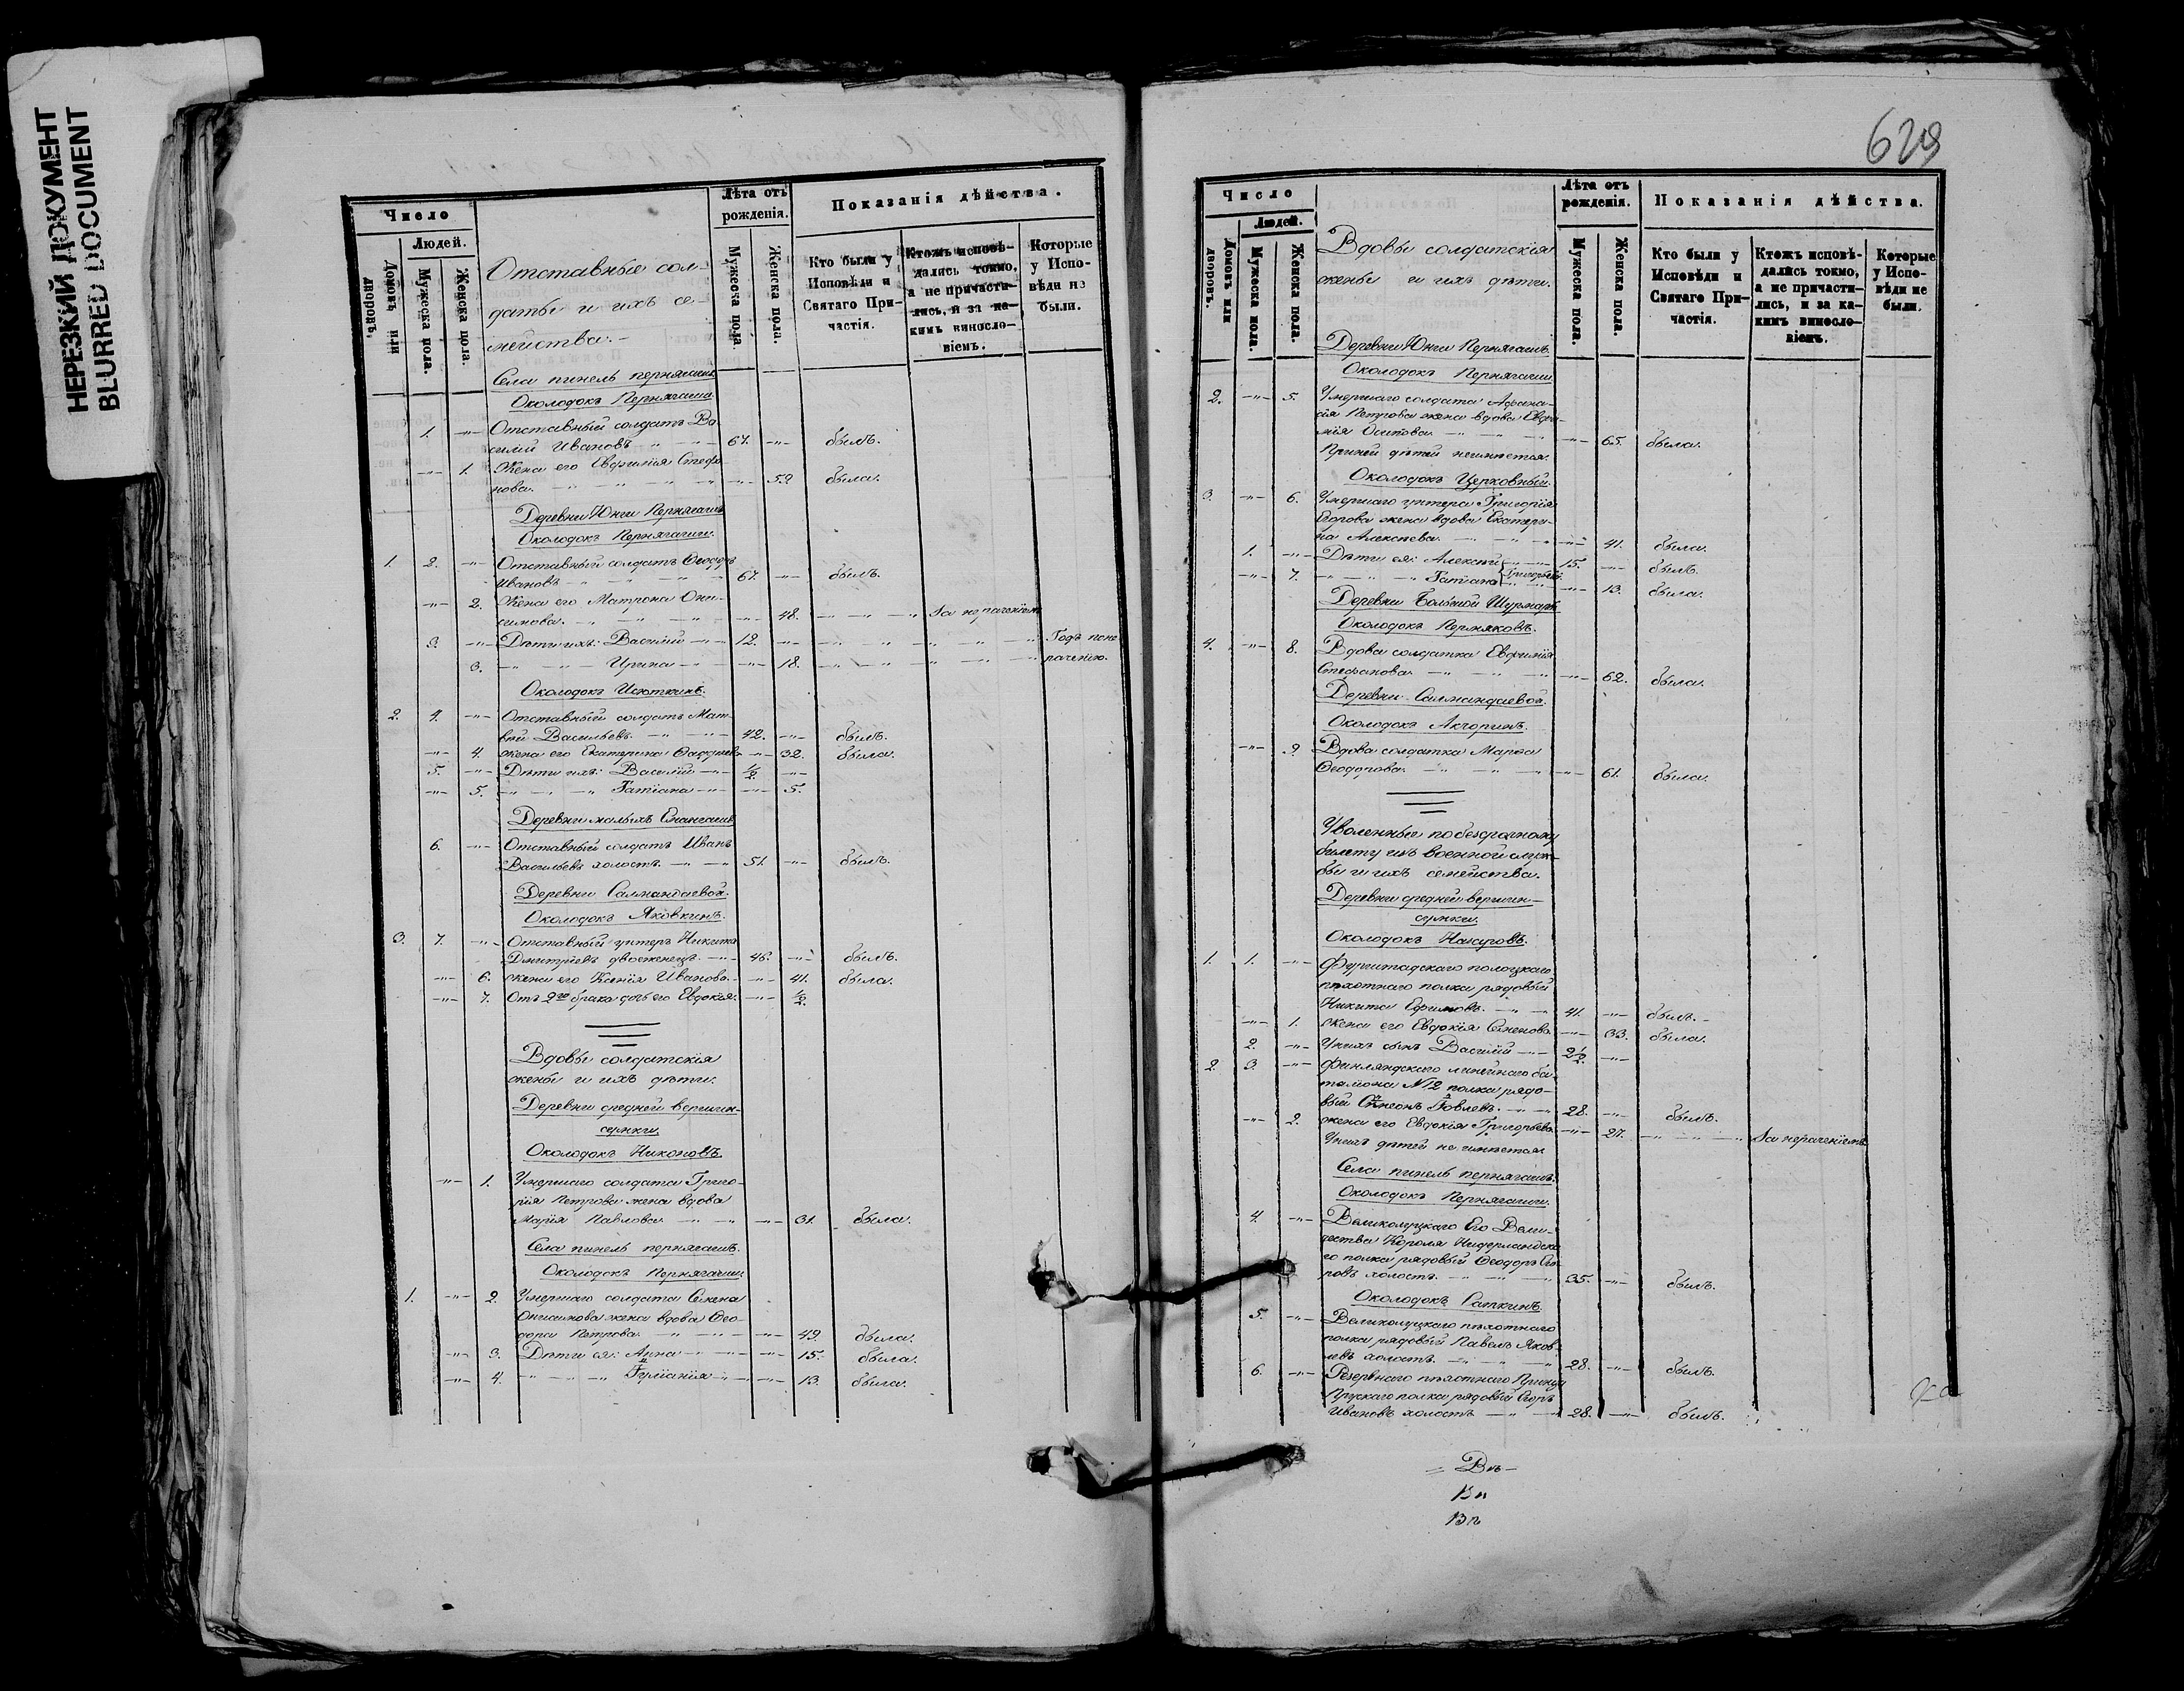 НЕРЕЗКИЙ ДОКУМЕНТ
BLURRED DOCUMENT
Число
Людей.
Домовъ или дворовъ.
Мужеска пола.
Женска пола.
Отставные сол-
даты и ихъ се-
мейства.-
Лѣта отъ рожденія.
Мужеска пола.
Женска пола.
Показанія дѣйства.
Кто были у Исповѣди и Святаго Причастія.
Ктожъ исповѣдались токмо, а не причастились, и за какимъ винословіемъ.
Которые у Исповѣди не были.
Села пинель пернягашъ
Околодокъ Пернягаши
1. -"- Отставный солдатъ Ва-
силій Ивановъ 67. -"- былъ.
-"- 1. Жена его Евфимія Стефа-
нова. -"- 59 была.
Деревни Юнги Пернягашъ
Околодокъ Пернягаши.
1. 2. -"- Отставный солдатъ Ѳеодоръ
Ивановъ 67. -"- былъ.
-"- 2. Жена его Матрона Они-
симова. -"- 48. За нераченіемъ
3. -"- Дѣти ихъ: Василій 12. -"- Годъ по не-
3. Ирина -"- 18. раченію.
Околодокъ Исюткинъ.
2. 4. -"- Отставный солдатъ Мат-
вѣй Васильевъ. 42. -"- былъ.
-"- 4. жена его Екатерина Ѳаддѣева -"- 32. была.
5. -"- Дѣти ихъ: Василій 1/2. -"-
-"- 5. Татіана -"- 5.
Деревни малыхъ Енангашъ
6. -"- Отставный солдатъ Иванъ
Васильевъ холостъ. 51. -"- былъ.
Деревни Салмандаевой.
Околодокъ Яковкинъ.
3. 7. -"- Отставный унтеръ Никита
Дмитріевъ двоеженецъ. 46. -"- былъ.
-"- 6. жена его Ксенія Иванова. -"- 41. была.
-"- 7. Отъ 2го брака дочь его Евдокія. -"- 1/2.
Вдовы солдатскія
жены и ихъ дѣти.
Деревни средней вершин-
сумки.
Околодокъ Никоновъ.
-"- 1. Умершаго солдата Григо-
рія Петрова жена вдова
Марія Павлова. -"- 31. была.
Села пинель пернягашъ.
Околодокъ Пернягаши.
1. -"- 2. Умершаго солдата Семена
Онисимова жена вдова Ѳео-
дора Петрова. -"- 49. была.
-"- 3. Дѣти ея: Анна -"- 15. была.
-"- 4. -"- 13. была.
629
Число
Людей.
Домовъ или дворовъ.
Мужеска пола.
Женска пола.
Вдовы солдатскія
жены и ихъ дѣти.
Лѣта отъ рожденія.
Мужеска пола.
Женска пола.
Показанія дѣйства.
Кто были у Исповѣди и Святаго Причастія.
Ктожъ исповѣдались токмо, а не причастились, и за какимъ винословіемъ.
Которые у Исповѣди не были.
Деревни Юнги Пернягашъ.
Околодокъ Пернягаши
2. -"- 5. Умершаго солдата Афана-
сія Петрова жена вдова Евфи-
мія Осипова. -"- 65. была.
При ней дѣтей не имѣется.
Околодокъ Церковный.
3. -"- 6. Умершаго унтера Григорія
Егорова жена вдова Екатери-
на Алексѣева. -"- 41. была.
1. -"- Дѣти ея: Алексѣй 15. -"- былъ.
-"- 7. Татіана Григорьевы -"- 13. была.
Деревни Большой Шурмаръ
Околодокъ Пермяковъ.
4. -"- 8. Вдова солдатка Евфимія
Стефанова. -"- 62. была.
Деревни Салмандаевой.
Околодокъ Акторинъ.
-"- 9 Вдова солдатка Марѳа
Ѳеодорова. -"- 61. была.
Уволенные по безсрочному
билету изъ военной служ-
бы и ихъ семейства.
Деревни средней вершин-
сумки.
Околодокъ Нагуровъ.
1. 1. -"- полоцкаго
пѣхотнаго полка рядовый
Никита Ефимовъ. 41. -"- былъ.-
-"- 1. жена его Евдокія Семенова -"- 33. была.
2. -"- У нихъ сынъ Василій 2 1/2. -"-
2 3. -"- Финляндскаго линейнаго ба-
таліона №12 полка рядо-
вый Симеонъ Іовлевъ. 28. -"- былъ.
-"- 2. жена его Евдокія Григорьева -"- 27. За нераченіемъ
У нихъ дѣтей не имѣется.
Села пинель пернягашъ.
Околодокъ Пернягаши.
4. -"- Великолуцкаго Его Вели-
чества Короля Нидерландска-
го полка рядовый Ѳеодоръ
холостъ. 35. -"- былъ.
Околодокъ Раткинъ.
5. -"- Великолуцкаго пѣхотнаго
полка рядовый Павелъ Яков-
левъ холостъ. 28. -"- былъ.
6. -"- Резервнаго пѣхотнаго Принца
Прускаго полка рядовый Егоръ
Ивановъ холостъ 28. -"- былъ.